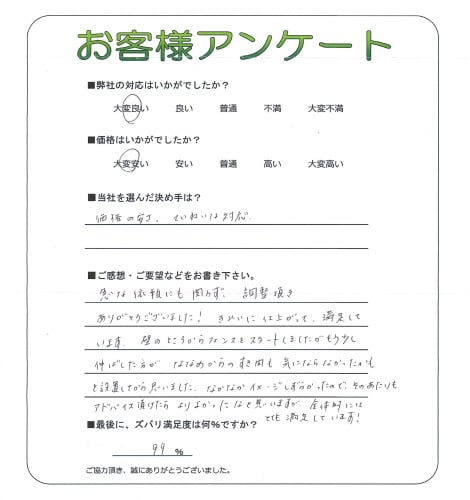 お客様アンケート
■弊社の対応はいかがでしたか？
大変良い 良い 普通 不満 大変不満
■価格はいかがでしたか？
大変安い 安い 普通 高い 大変高い
■当社を選んだ決め手は？
価格の安さ、ていねいな対応
■ご感想・ご要望などをお書き下さい。
急な依頼にも関わらず、調整頂き
ありがとうございました！きれいに仕上がって、満足して
います。壁のところからフェンスをスタートしましたがもう少し
伸ばした方が ななめからのすき間も 気にならなかったかも
と設置してから思いました。なかなかイメージしずらかったので、そのあたりも
アドバイス頂けたら よりよかったなと思いますが、全体的には
とても満足しています！
■最後に、ズバリ満足度は何%ですか？
99 %
ご協力頂き、誠にありがとうございました。